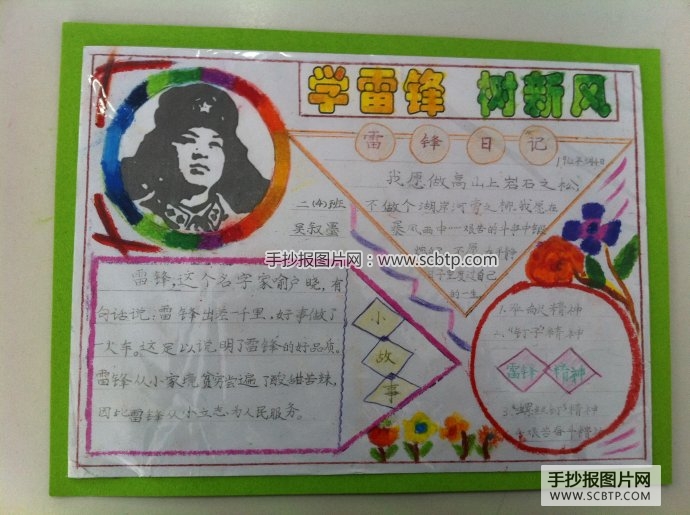 学雷锋 树新风
雷锋日记
我愿做高山上岩石之松,
不做个湖岸河旁之柳.我愿在
暴风雨中
自己
的一生.
二(4)班
吴叙墨
手抄报图片网：www.scbtp.com
雷锋,这个名字家喻户晓,有
句话说:雷锋出差一千里,好事做了
一火车。这足以说明了雷锋的好品质。
雷锋从小家境贫穷尝遍了酸甜苦辣,
因此雷锋从小立志为人民服务。
小
故
事
1.奉献精神
2."钉子"精神
雷锋 精神
3."螺丝钉"精神
4.艰苦奋斗精神
手抄报图片网
WWW.SCBTP.COM